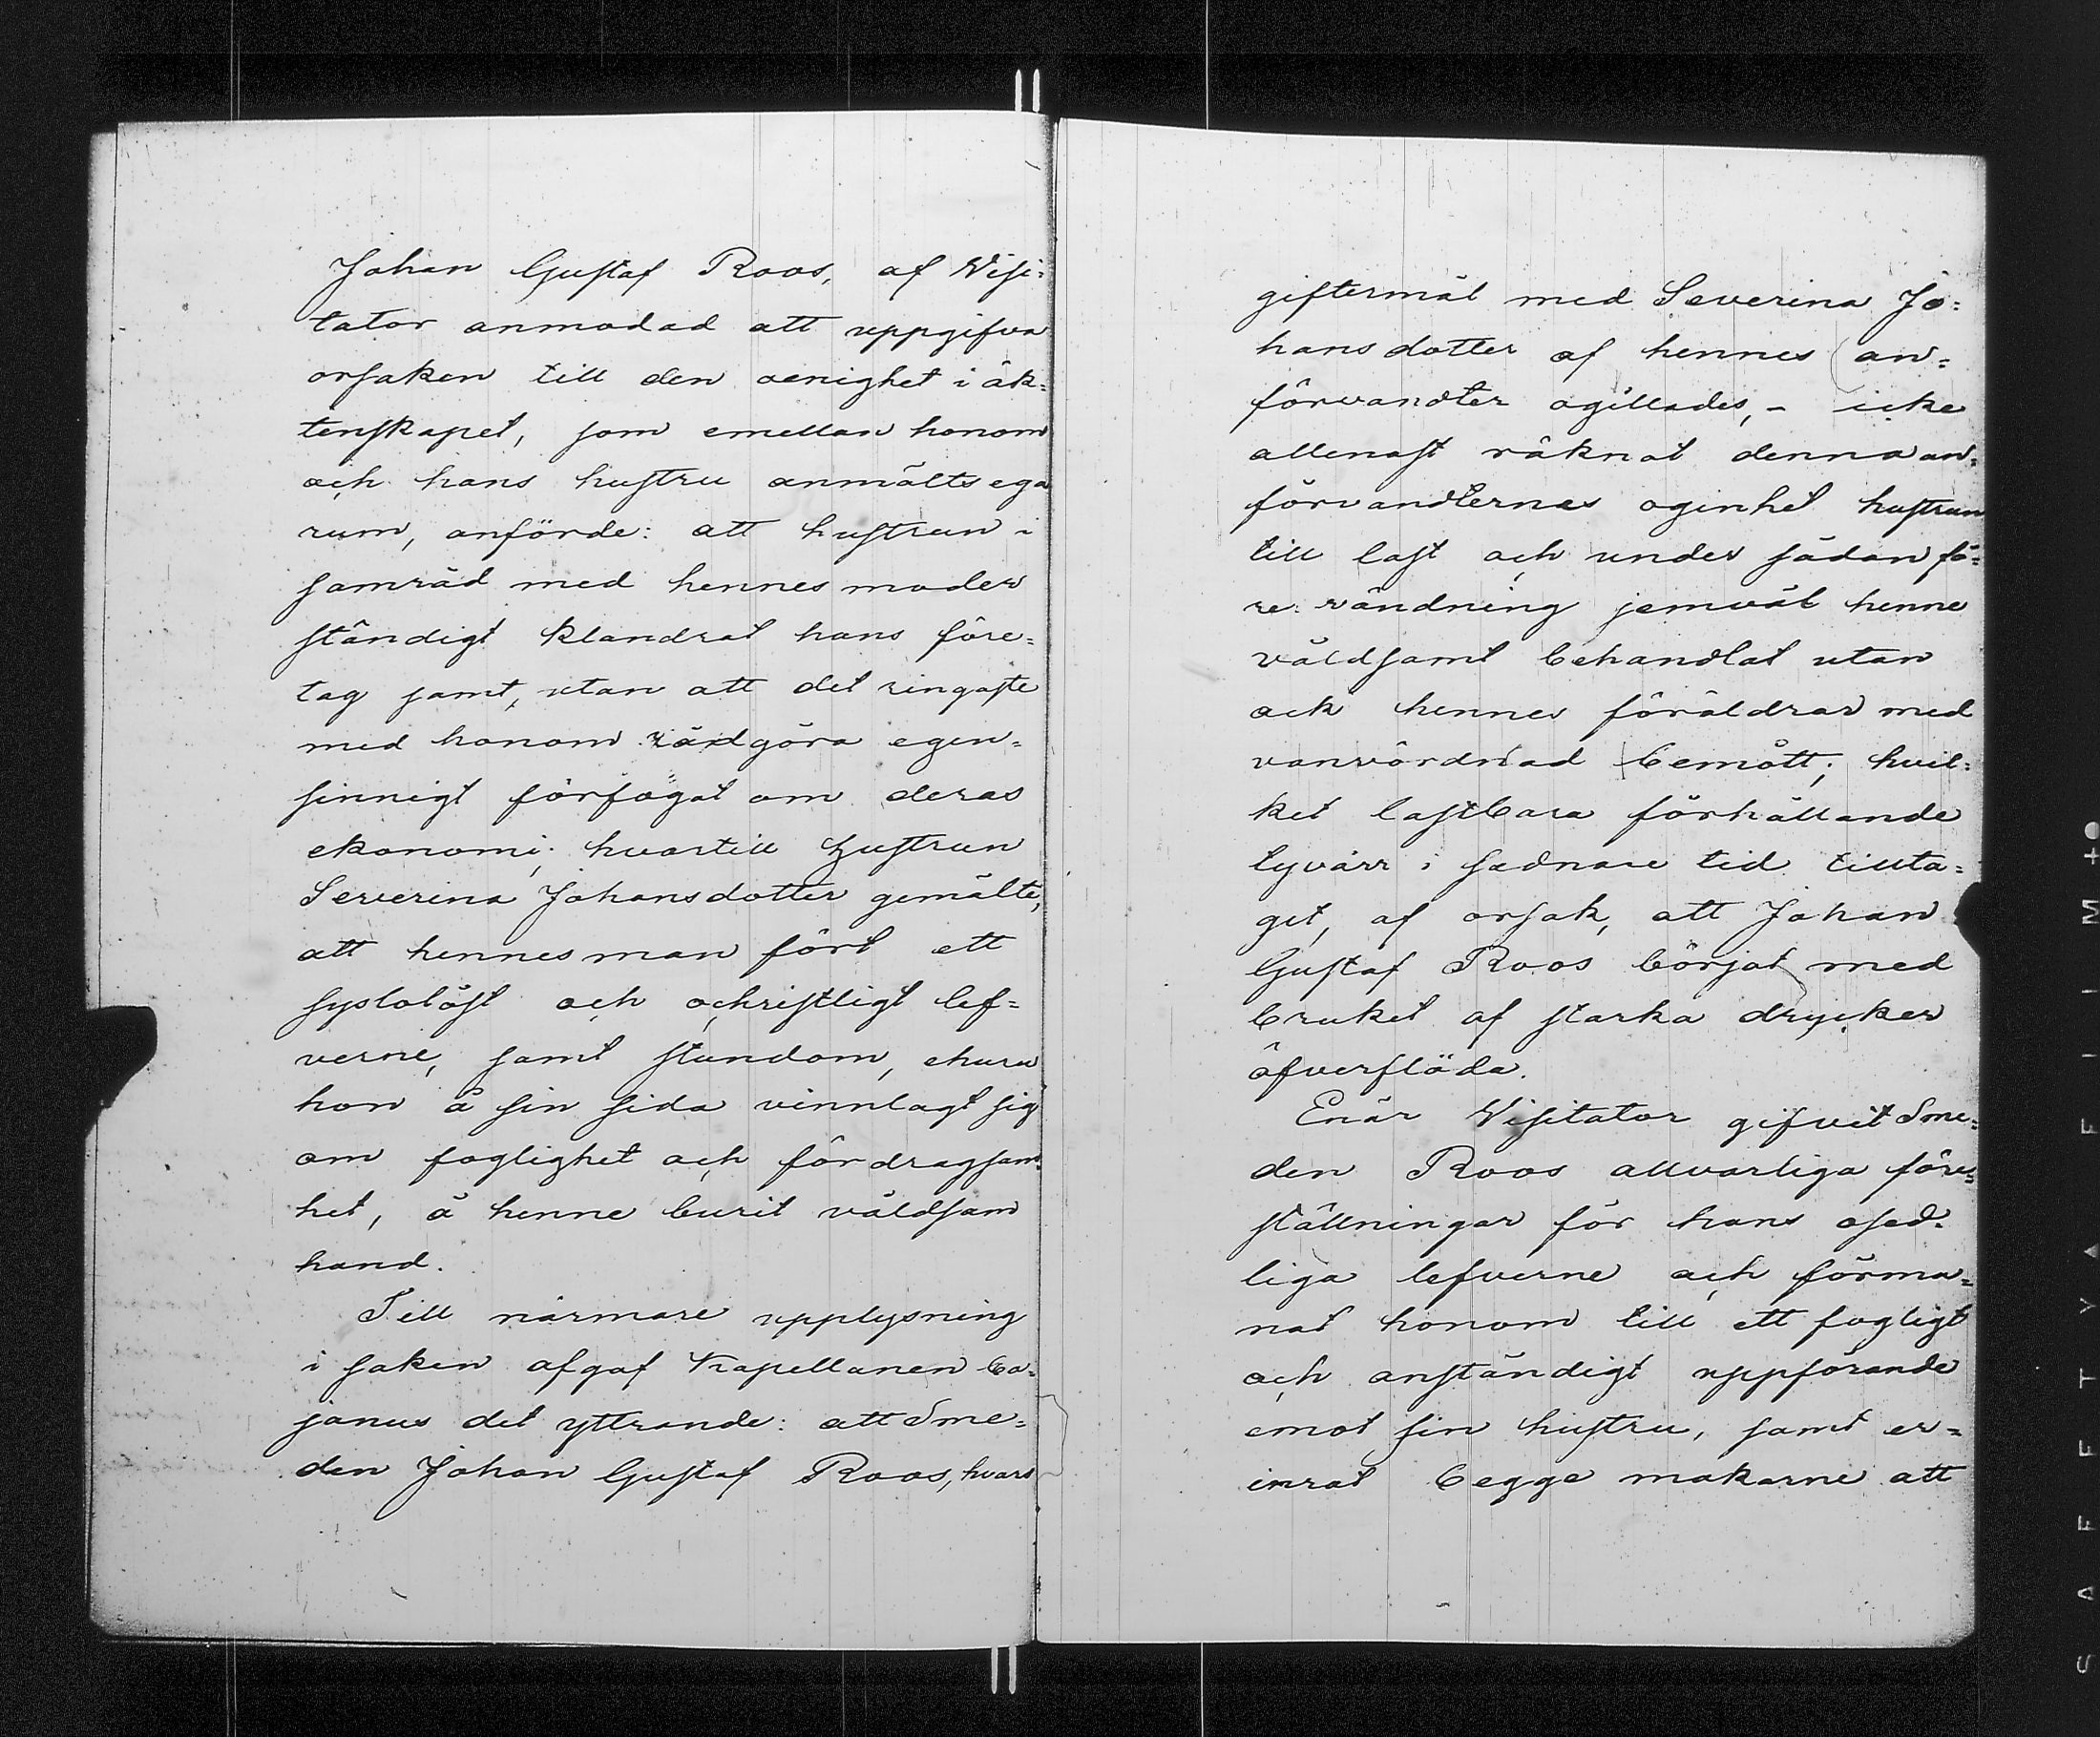 Johan Gustaf Roos, af Visi=
tator anmodad att uppgifva
orsaken till den oenighet i äk=
tenskapet, som emellan honom
och hans hustru anmälts ega
rum, anförde: att hustrun i
samråd med hennes moder
ständigt klandrat hans före=
tag samt, utan att det ringaste
med honom rådgöra egen=
sinnigt förfogat om deras
ekonomi; hvartill hustrun
Severina Johansdotter genmälte,
att hennes man fört ett
syslolöst och ochristligt lef=
verne, samt stundom, ehuru
hon å sin sida vinnlagt sig
om foglighet och fördragsam=
het, å henne burit våldsam
hand.
Till närmare upplysning
i saken afgaf Kapellanen Ca=
janus det yttrande: att Sme=
den Johan Gustaf Roos, hvars
giftermål med Severina Jo=
hansdotter af hennes an=
förvandter ogillades, - icke
allenast räknat denna an=
förvandternes oginhet hustrun
till last och under sådan fö=
re vändning jemväl henne
våldsamt behandlat utan
ock hennes föräldrar med
vanvördnad bemött; hvil=
ket lastbara förhållande
tyvärr i sednare tid tillta=
git, af orsak, att Johan
Gustaf Roos börjat med
bruket af starka drycker
öfverflöda.
Enär Visitator gifvit Sme=
den Roos allvarliga före=
ställningar för hans osed=
liga lefverne och förma=
nat honom till ett fogligt
och anständigt uppförande
emot sin hustru, samt er=
inrat begge makarne att
SAFETY FILM